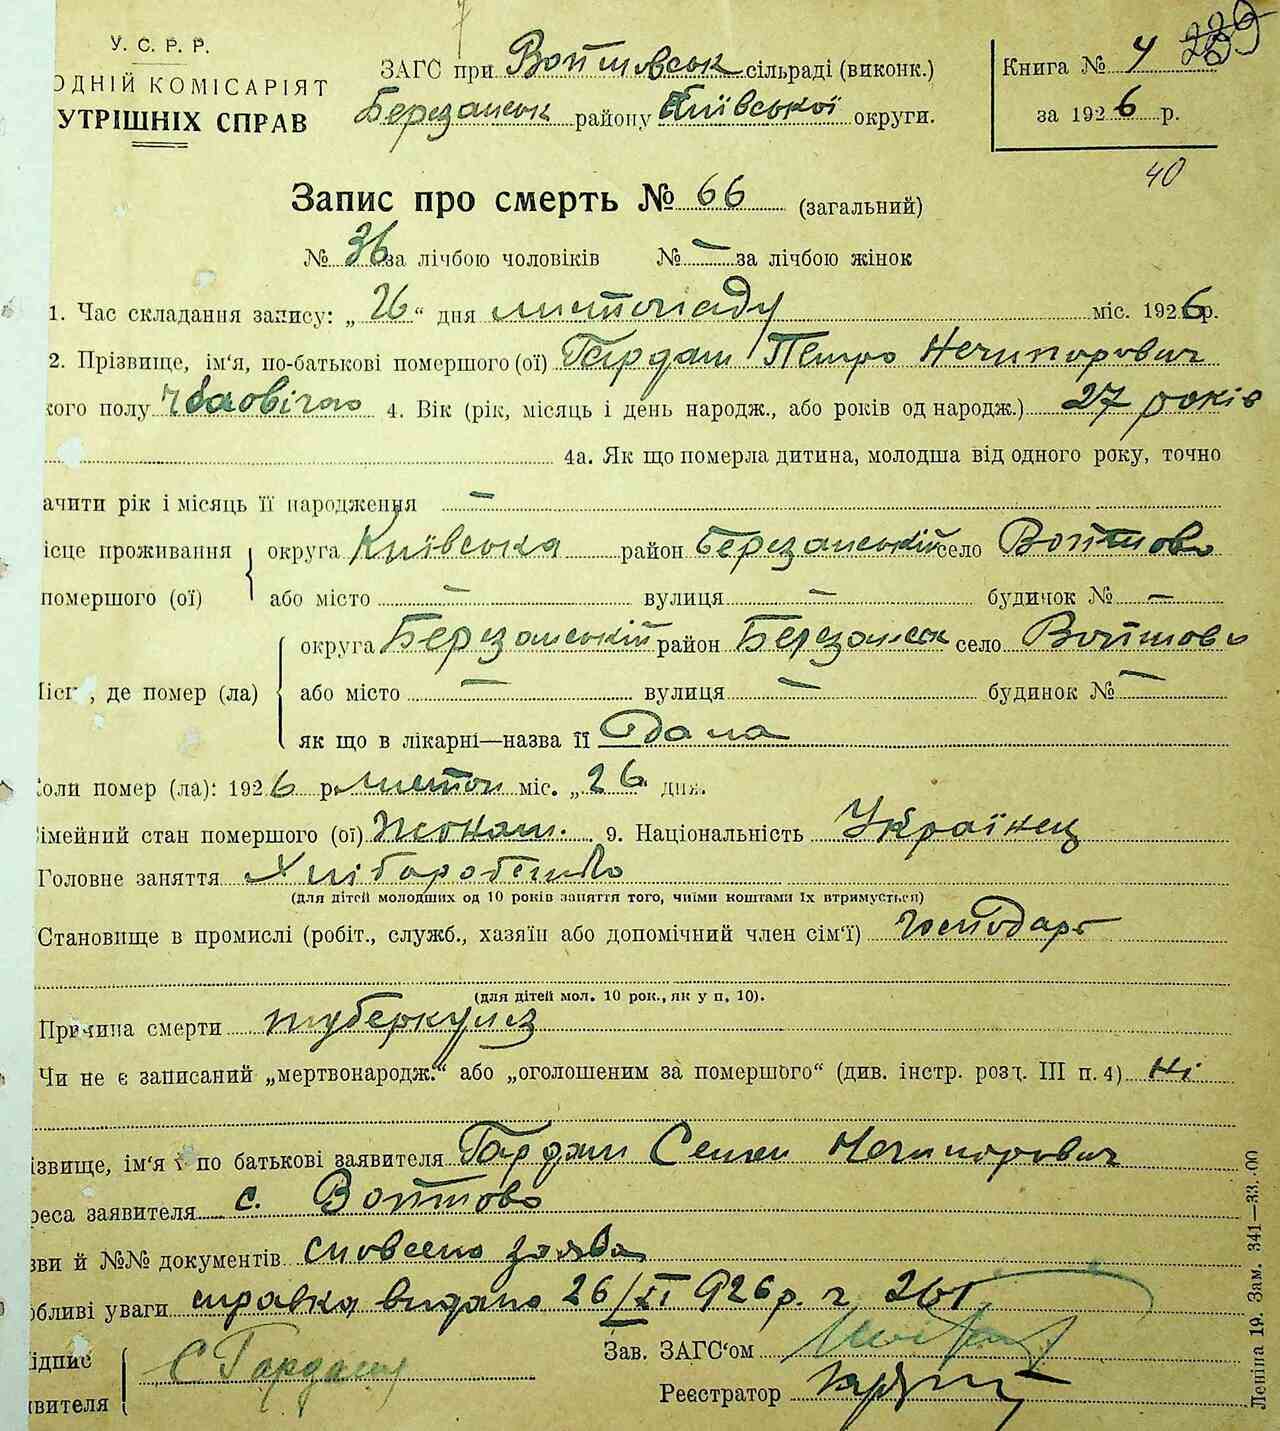 У. С. Р. Р.
ОДНІЙ КОМІСАРІЯТ
УТРІШНІХ СПРАВ
ЗАГС при Войтовськ сільраді (виконк.)
Березанськ району Київської округи.
Книга № 4
за 1926 р.
40
Запис про смерть № 66 (загальний)
№ 36 за лічбою чоловіків № — за лічбою жінок
1. Час складання запису: „26“ дня листопаду міс. 1926 р.
2. Прізвище, ім'я, по-батькові помершого (ої) Гардаш Петро Нечипорович
кого полу 4. Вік (рік, місяць і день народж., або років од народж.) 27 років
4а. Як що померла дитина, молодша від одного року, точно
ачити рік і місяць її народження —
ісце проживання округа Київська район Березанський село Войтово
помершого (ої) або місто — вулиця — будинок № —
округа Березанський район Березанськ село Войтово
Міс , де помер (ла) або місто — вулиця — будинок № —
як що в лікарні—назва її Дома
оли помер (ла): 1926 р. листоп міс. „26 дня.
імейний стан помершого (ої) Жонат. 9. Національність Українец
Головне заняття Хліборобство
(для дітей молодших од 10 років заняття того, чиїми коштами їх втримується)
Становище в промислі (робіт., служб., хазяїн або допомічний член сім'ї) господарь
(для дітей мол. 10 рок., як у п. 10).
Причина смерти туберкульоз
Чи не є записаний „мертвонародж.“ або „оголошеним за помершого“ (див. інстр. розд. III п. 4) ні
ізвище, ім'я і по батькові заявителя Гардаш Семен Нечипорович
реса заявителя с. Войтово
зви й №№ документів словесна заява
обливі уваги справка видано 26/XI 926 р. ч 261
ідпис С Гардаш
явителя
Зав. ЗАГС'ом
Реєстратор
Леніна 19. Зам. 341—33.000